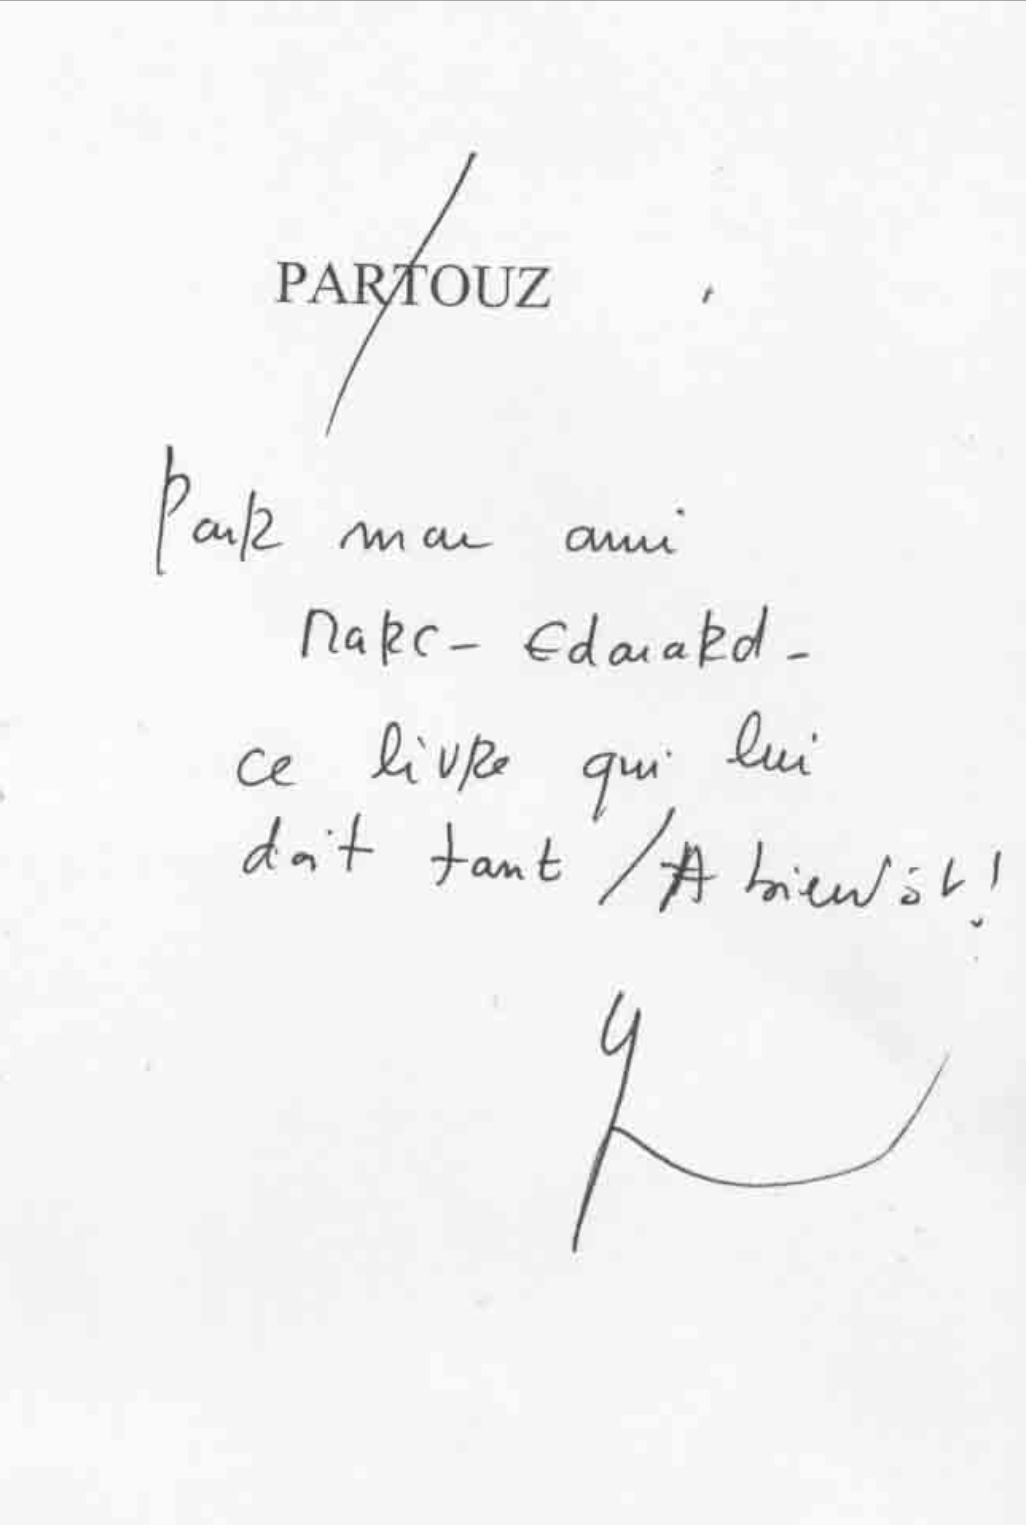 PARTOUZ
Pour mon ami
Marc-Edouard-
ce livre qui lui
doit tant / A bientôt!
Y